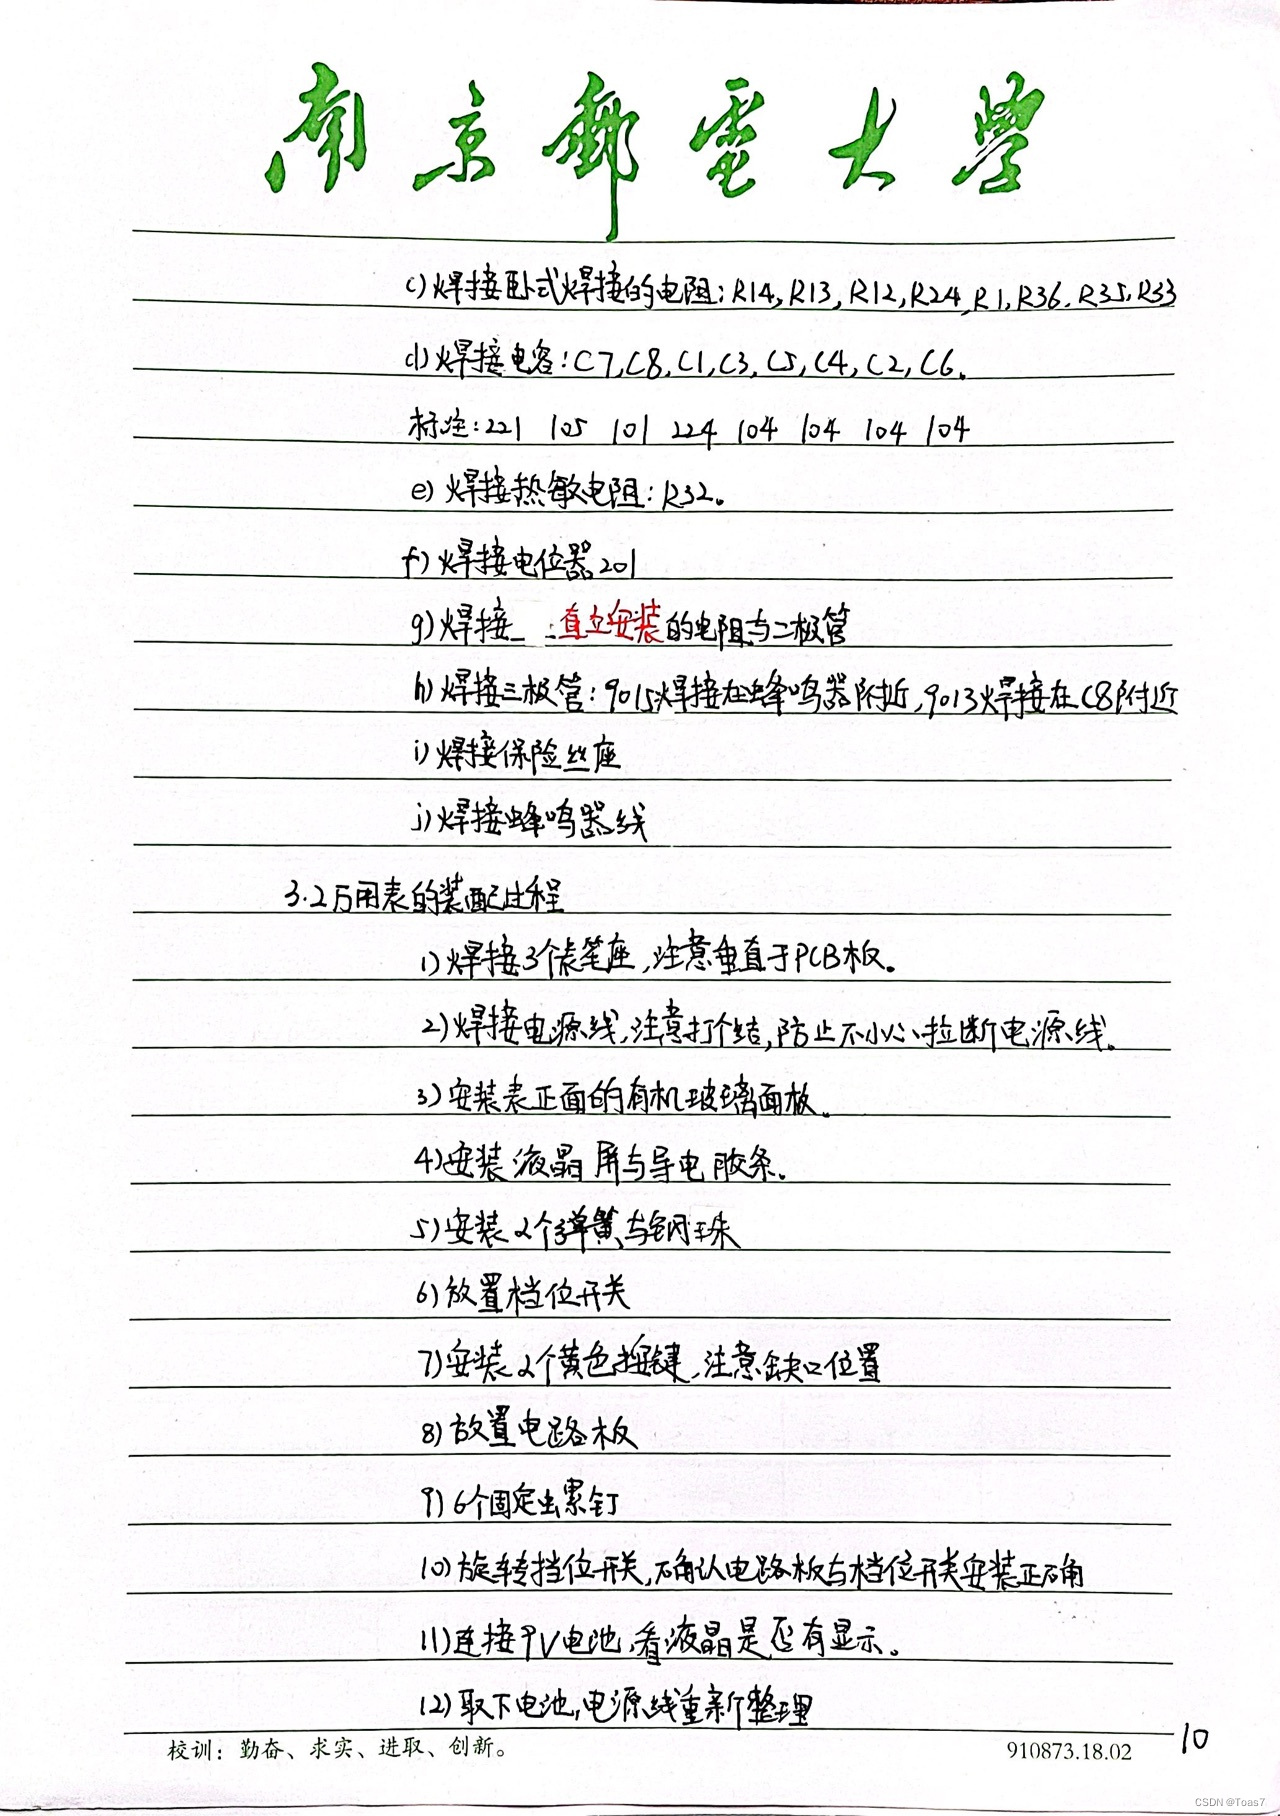 南京郵電大學
c)焊接卧式焊接的电阻:R14,R13,R12,R24,R1,R36.R35,R33
d)焊接电容:C7,C8,C1,C3,C5,C4,C2,C6.
标注:221 105 101 224 104 104 104 104
e)焊接热敏电阻:R32。
f)焊接电位器201
g)焊接_ :直立安装的电阻与二极管
h)焊接三极管:9015焊接在蜂鸣器附近,9013焊接在C8附近
i)焊接保险丝座
j)焊接蜂鸣器线
3.2万用表的装配过程
1)焊接3个表笔座,注意垂直于PCB板。
2)焊接电源线,注意打个结,防止不小心拉断电源线。
3)安装表正面的有机玻璃面板。
4)安装液晶屏与导电胶条。
5)安装2个弹簧与钢珠
6)放置档位开关
7)安装2个黄色按键,注意缺口位置
8)放置电路板
9)6个固定螺钉
10)旋转挡位开关,确认电路板与档位开关安装正确
11)连接9V电池,看液晶是否有显示。
12)取下电池,电源线重新整理
校训：勤奋、求实、进取、创新。 910873.18.02 10
CSDN @Toas7